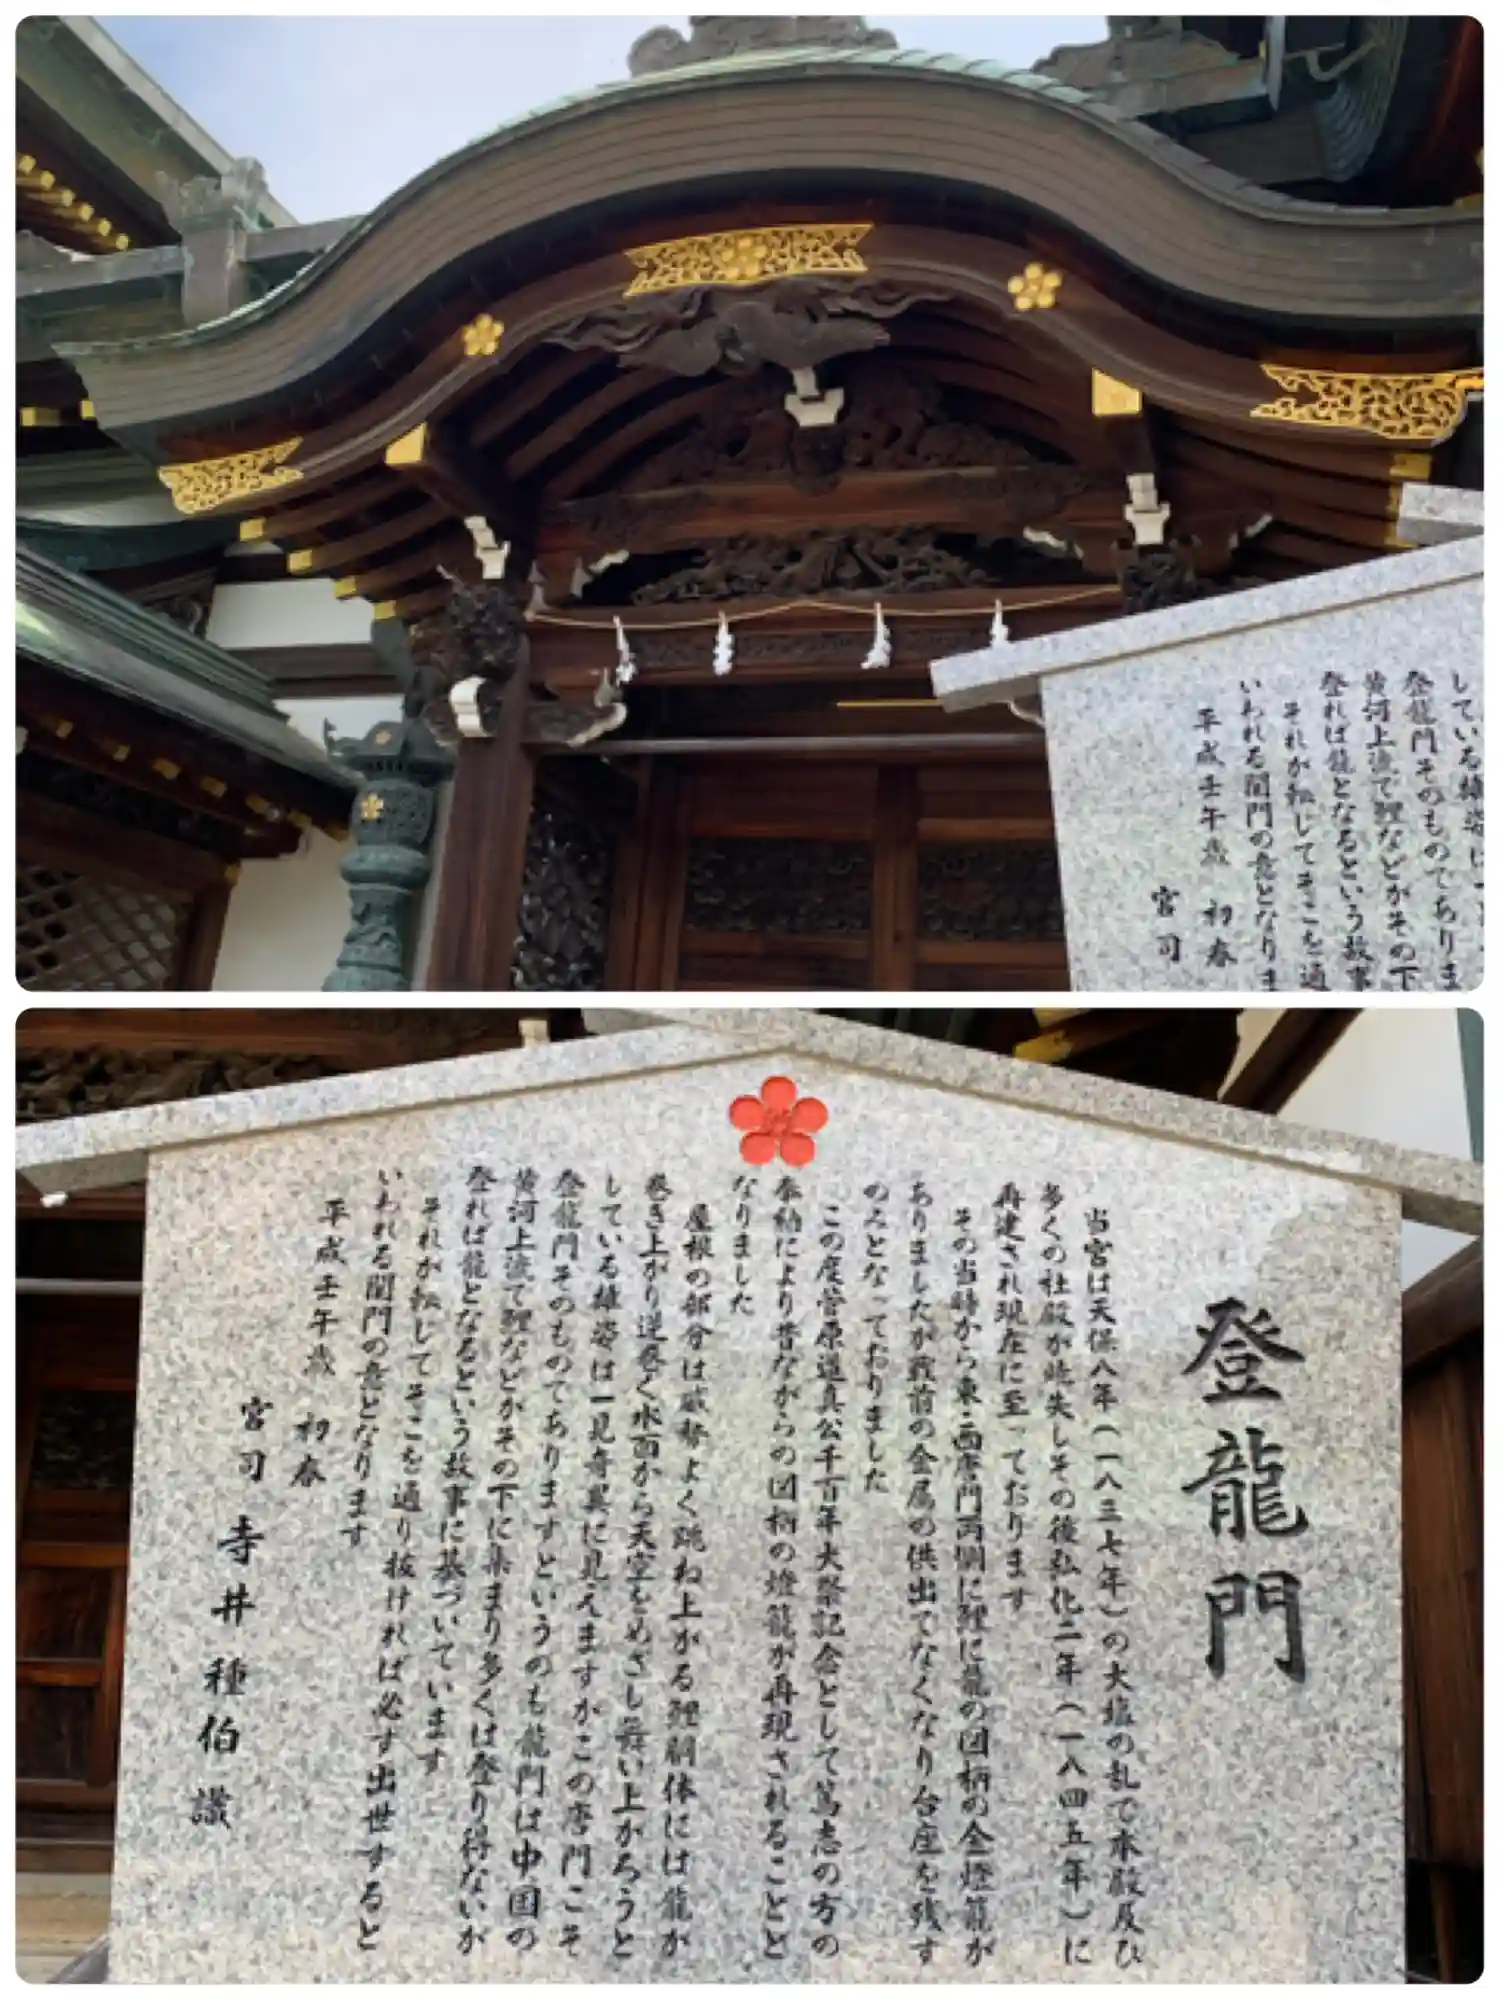 している雄姿は一
登龍門そのものでありま
黄河上流で鯉などがその下
登れば龍となるという故事
それが転じてそこを通
いわれる関門の意となりま
平成壬午歳 初春
宮司
登龍門
当宮は天保八年(一八三七年)の大塩の乱で本殿及び
多くの社殿が焼失しその後弘化二年(一八四五年)に
再建され現在に至っております
その当時から東・西唐門両側に鯉に龍の図柄の金燈籠が
ありましたが戦前の金属の供出でなくなり台座を残す
のみとなっておりました
この度菅原道真公千百年大祭記念として篤志の方の
奉納により昔ながらの図柄の燈籠が再現されることと
なりました
屋根の部分は威勢よく跳ね上がる鯉胴体には龍が
巻き上がり逆巻く水面から天空をめざし舞い上がろうと
している雄姿は一見奇異に見えますがこの唐門こそ
登龍門そのものでありますというのも龍門は中国の
黄河上流で鯉などがその下に集まり多くは登り得ないが
登れば龍となるという故事に基づいています
それが転じてそこを通り抜ければ必ず出世すると
いわれる関門の意となります
平成壬午歳 初春
宮司 寺井種伯 識